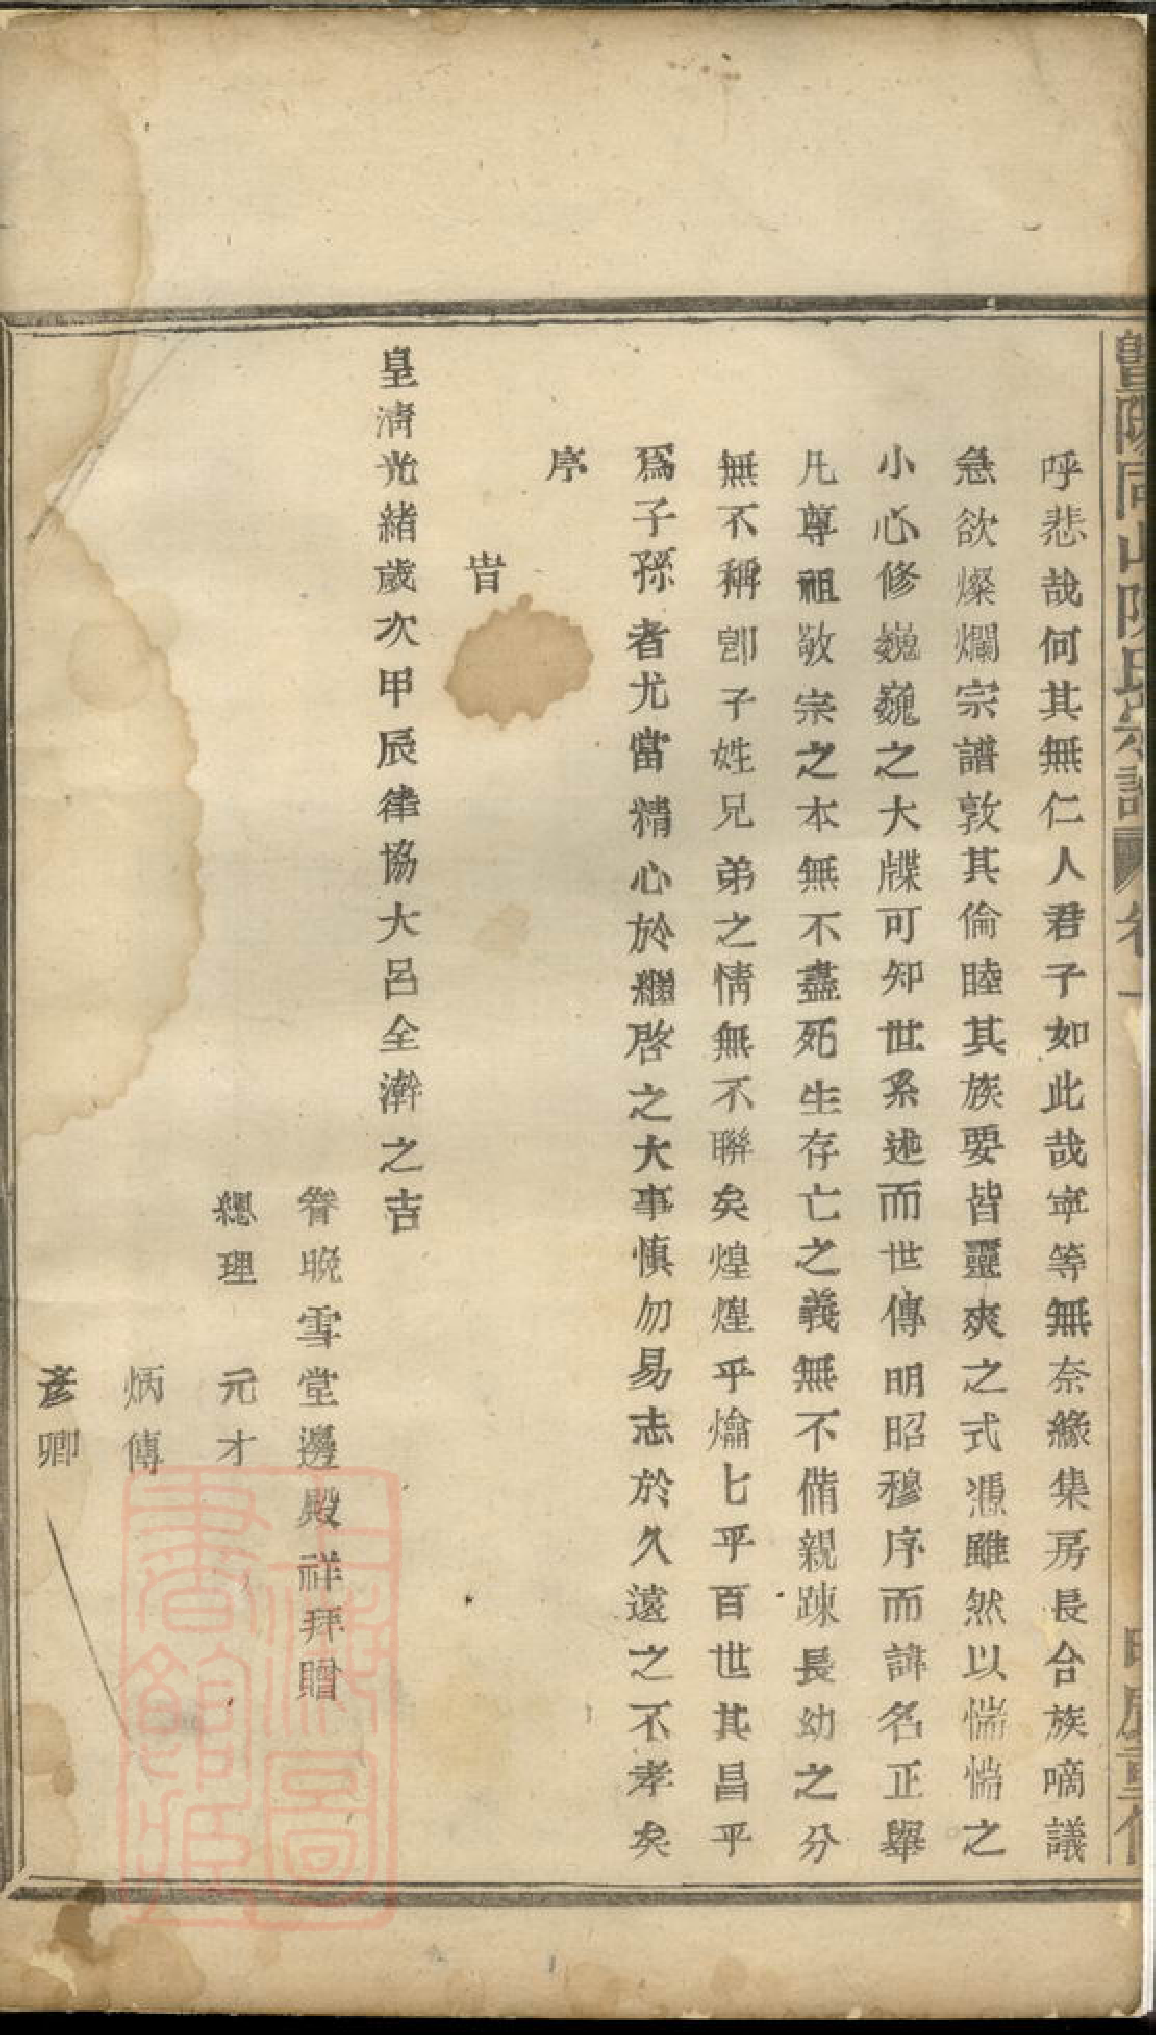 暨陽同山陳氏宗譜 卷一
呼悲哉何其無仁人君子如此哉寧等無奈緣集房長合族嘀議
急欲燦爛宗譜敦其倫睦其族要皆靈爽之式憑雖然以惴惴之
小心修巍巍之大牒可知世系述而世傳明昭穆序而諱名正舉
凡尊祖敬宗之本無不盡死生存亡之義無不脩親踈長幼之分
無不稱卽子姓兄弟之情無不聯矣煌煌乎爚七乎百世其昌乎
爲子孫者尤當精心於繼啓之大事慎勿易志於久遠之不孝矣
序
旹
皇淸光緒歲次甲辰律協大呂全澣之吉
眷晚雪堂邊殿祥拜贈
總理 元才
炳傳
彦卿
上海圖書館藏